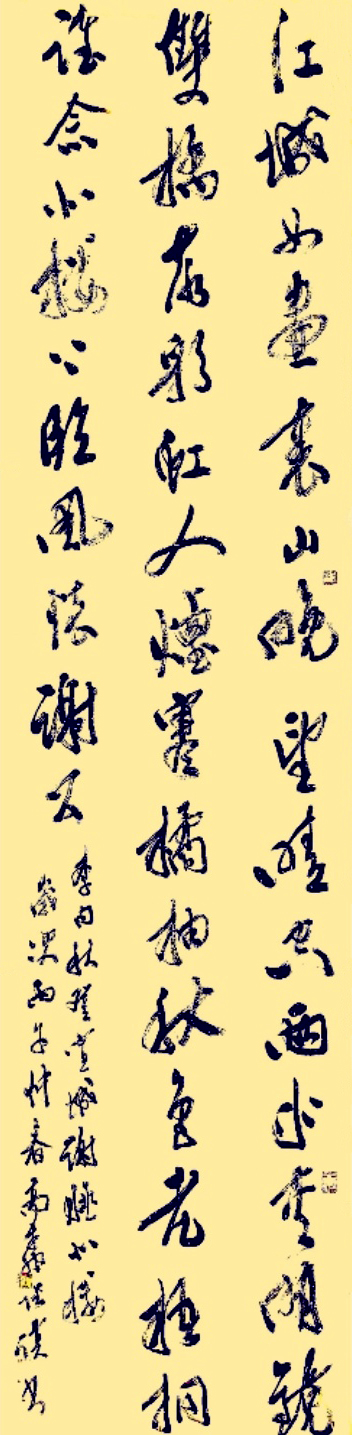 江城如畫裏山晚望晴空兩水夾明鏡
雙橋落彩虹人煙寒橘柚秋色老梧桐
誰念北樓上臨風懷謝公
李白秋登宣城謝朓北樓
歲次丙子仲春